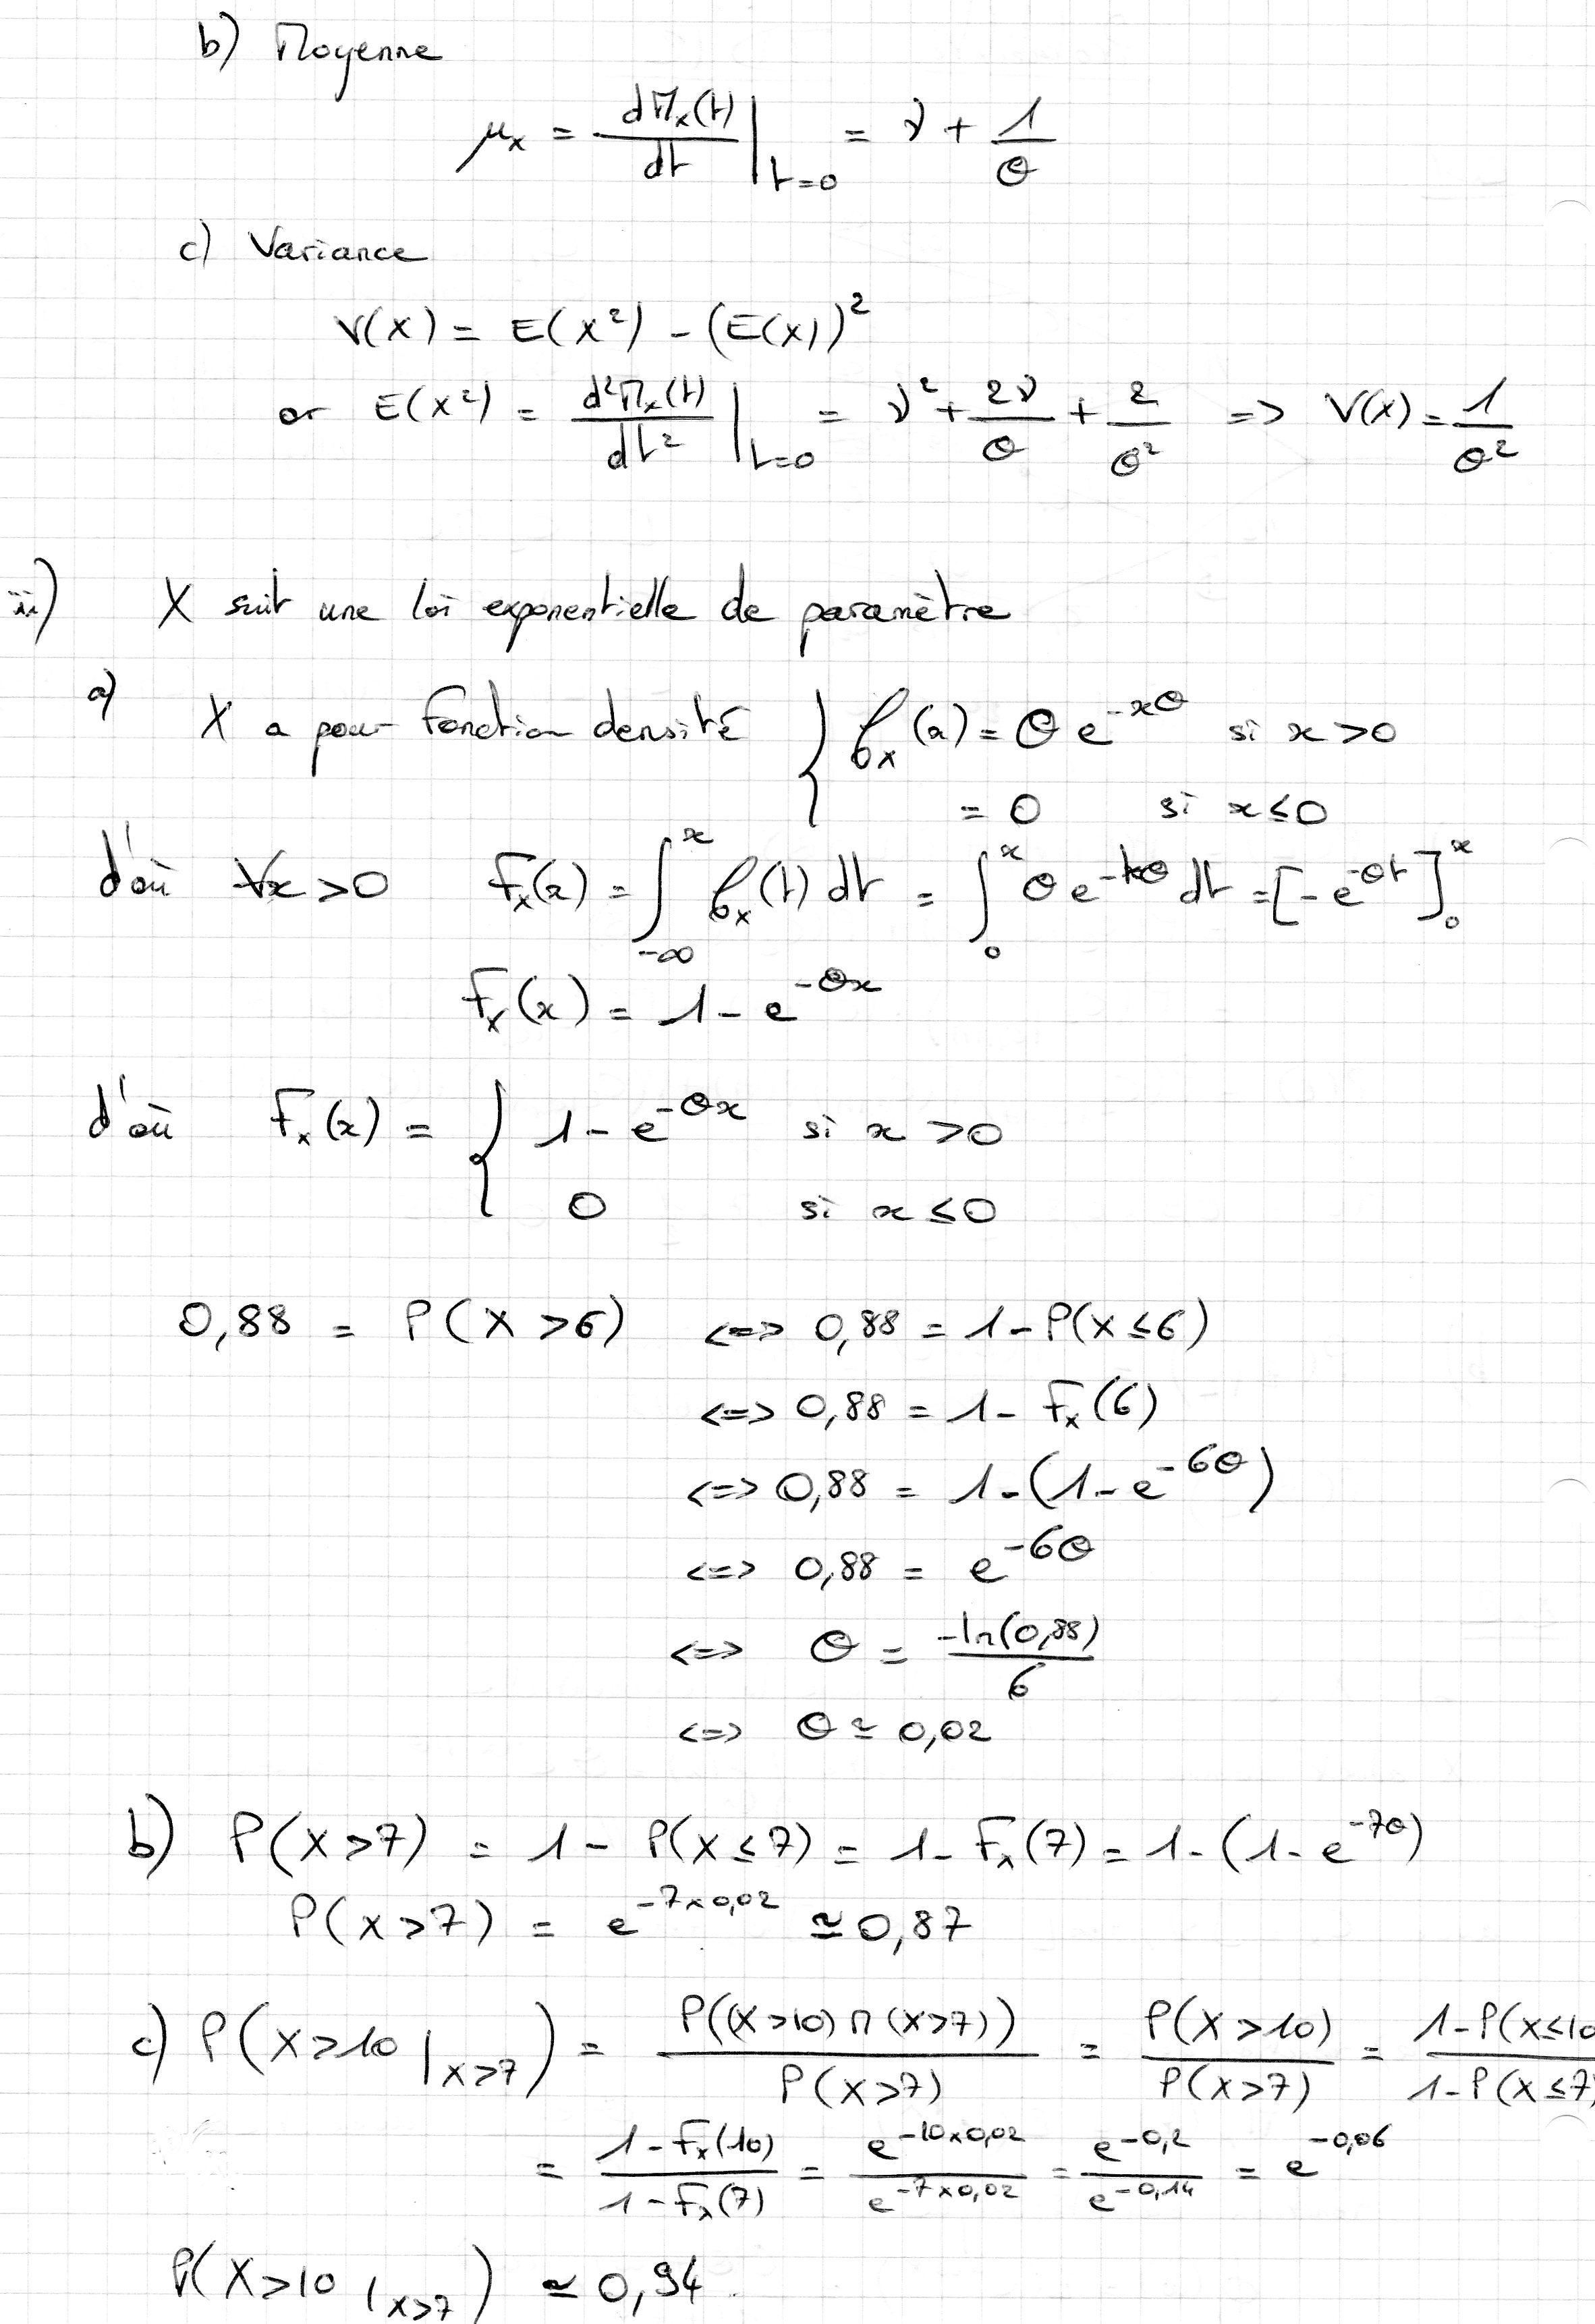 b) Moyenne
μ_x = dM_x(t)/dt |_{t=0} = ν + 1/θ
c) Variance
V(X) = E(X²) - (E(X))²
or E(X²) = d²M_x(t)/dt² |_{t=0} = ν² + 2ν/θ + 2/θ² => V(X) = 1/θ²
ii) X suit une loi exponentielle de paramètre
a) X a pour fonction densité { f_x(x) = θ e^{-xθ} si x > 0
= 0 si x ≤ 0
d'où ∀x > 0 F_x(x) = ∫_{-∞}^{x} f_x(t) dt = ∫_0^x θ e^{-tθ} dt = [-e^{-θt}]_0^x
F_x(x) = 1 - e^{-θx}
d'où F_x(x) = { 1 - e^{-θx} si x > 0
0 si x ≤ 0
0,88 = P(X > 6) <=> 0,88 = 1 - P(X ≤ 6)
<=> 0,88 = 1 - F_x(6)
<=> 0,88 = 1 - (1 - e^{-6θ})
<=> 0,88 = e^{-6θ}
<=> θ = -ln(0,88)/6
<=> θ ≃ 0,02
b) P(X > 7) = 1 - P(X ≤ 7) = 1 - F_x(7) = 1 - (1 - e^{-7θ})
P(X > 7) = e^{-7×0,02} ≃ 0,87
c) P(X > 10 |_{X>7}) = P((X > 10) ∩ (X > 7))/P(X > 7) = P(X > 10)/P(X > 7) = 1 - P(X ≤ 10/1 - P(X ≤ 7)
= 1 - F_x(10)/1 - F_x(7) = e^{-10×0,02}/e^{-7×0,02} = e^{-0,2}/e^{-0,14} = e^{-0,06}
P(X > 10 |_{X>7}) ≃ 0,94.